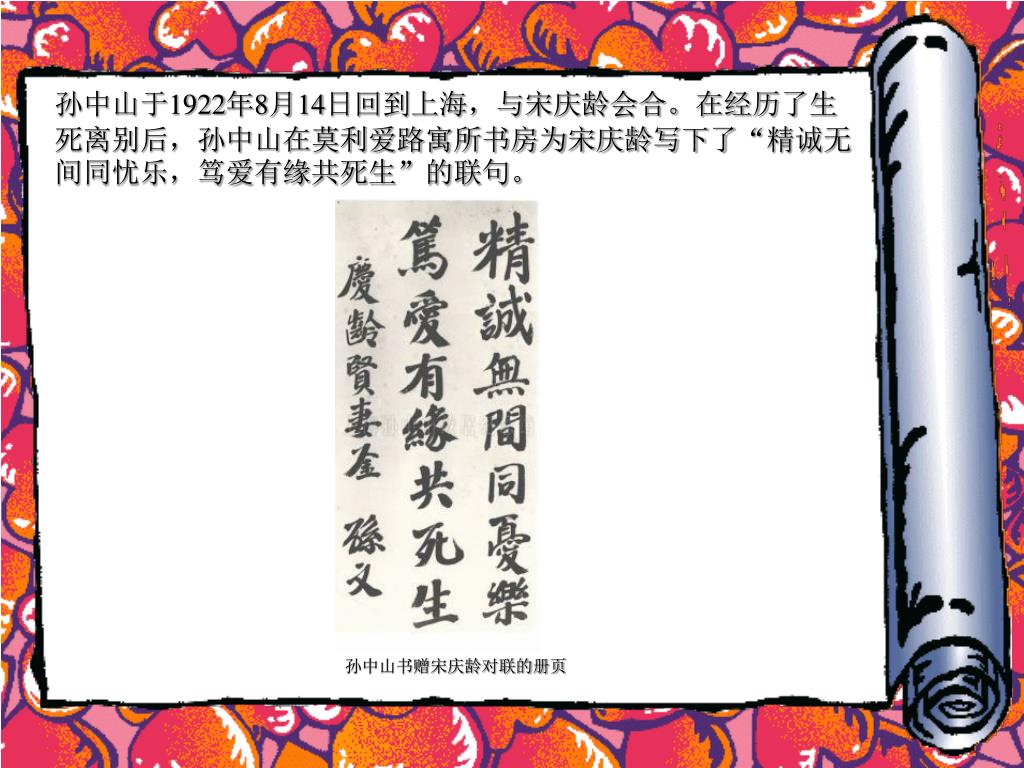 孙中山于1922年8月14日回到上海，与宋庆龄会合。在经历了生
死离别后，孙中山在莫利爱路寓所书房为宋庆龄写下了“精诚无
间同忧乐，笃爱有缘共死生”的联句。
精誠無間同憂樂
篤愛有緣共死生
慶齡賢妻鉴 孫文
孙中山书赠宋庆龄对联的册页